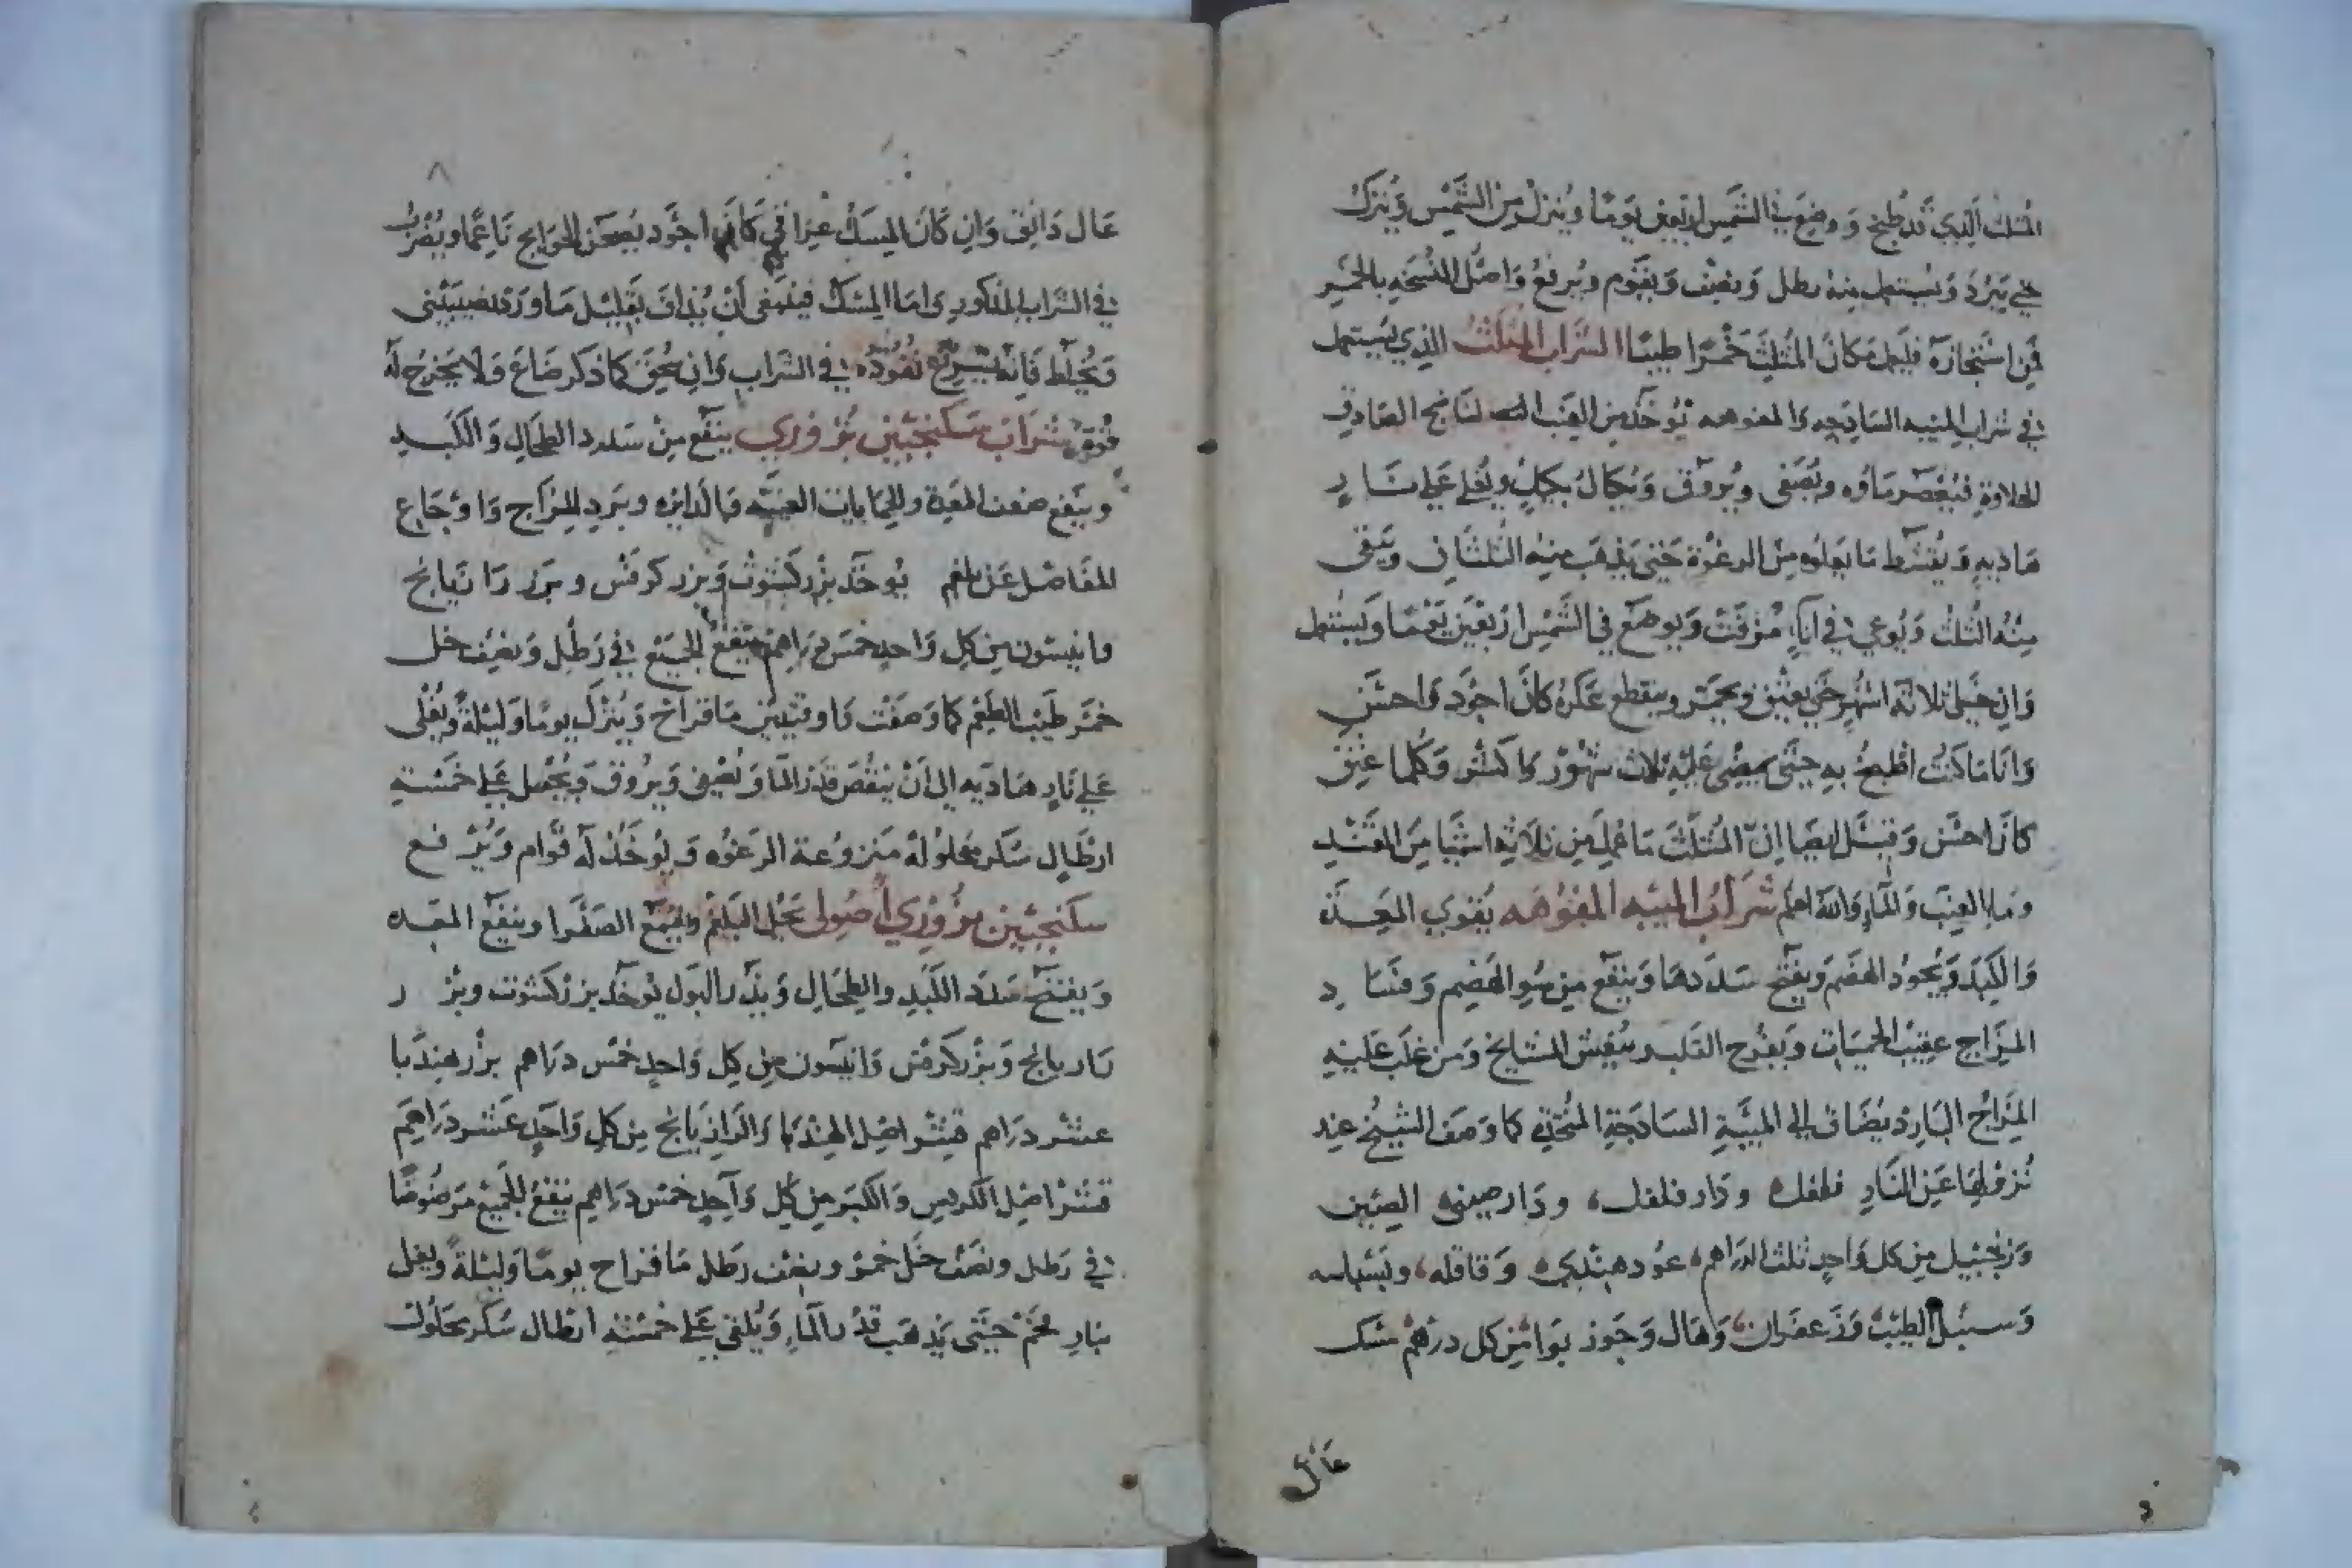 المثلث الذي قد طبخ و وضع في الشمس اربعين يوما وينزل من الشمس ويترك
حتى يبرد ويستعمل منه رطل ونصف ويقوم ويرفع واصل النسخه بالخمر
فمن استجازه فليعمل مكان المثلث خمرا طيبا الشراب المثلث الذي يستعمل
في شراب الميبه الساذجه والمفوهه يوخذ من العنب الناضج الصادق
الحلاوة فيعصر ماوه ويصفى ويروق ويكال بكيل ويغلى على نار
هاديه ويقشط ما يعلوه من الرغوة حتى يذهب منه الثلثان ويبقى
منه الثلث ويوعى في اناء مزفت ويوضع في الشمس اربعين يوما ويستعمل
وان خلي ثلاثة اشهر حتى يعتق ويحمر وينقطع عكره كان اجود واحسن
وانا ما كنت اطبخ به حتى يمضي عليه ثلاث شهور واكثر وكلما عتق
كان احسن وقيل ايضا ان المثلث ما عمل من ثلاثة اشيا من القند
وما العنب والماء والله اعلم شراب الميبه المفوهه يقوي المعدة
والكبد ويجود الهضم ويفتح سددها وينفع من سو الهضم وفساد
المزاج عقيب الحميات ويفرح القلب وينعش المشايخ ومن غلب عليه
المزاج البارد يضاف الى الميبة الساذجة المتخذة كما وصف الشيخ عند
نزولها عن النار فلفل ودار فلفل ودار صيني الصين
وزنجبيل من كل واحد ثلث الدراهم عود هندي وقاقله وبسباسه
وسنبل الطيب وزعفران وهال وجوز بوا من كل درهم مسك
عال
عال دانق وان كان المسك عراقي كان اجود يصحن الحوايج ناعما ويضرب
في الشراب المذكور واما المسك فينبغي ان يذاف بقليل ماورد نصيبيني
ويخلط فانه يسرع نفوذه في الشراب وان سحق كما ذكر ضاع ولا يخرج له
قوة شراب سكنجبين بزوري ينفع من سدد الطحال والكبد
وينفع ضعف المعدة والحمايات العتيقه والدايره وبرد المزاج واوجاع
المفاصل عن بلغم يوخذ بزر كشوث وبزر كرفس وبزر رازيانج
وانيسون من كل واحد خمس دراهم ينقع الجميع في رطل ونصف خل
خمر طيب الطعم كما وصفت واوقيتين ما قراح ويترك يوما وليلة ويغلى
على نار هاديه الى ان ينقص قدر الما ويصفى ويروق ويجعل على خمسة
ارطال سكر محلولة منزوعة الرغوه ويوخذ له قوام ويرفع
سكنجبين بزوري اصولي يحل البلغم ويقمع الصفرا وينفع المعده
ويفتح سدد الكبد والطحال ويدر البول يوخذ بزر كشوث وبزر
رازيانج وبزر كرفس وانيسون من كل واحد خمس دراهم بزر هندبا
عشر دراهم قشر اصل الهندبا والرازيانج من كل واحد عشر دراهم
قشر اصل الكرفس والكبر من كل واحد خمس دراهم ينقع الجميع مرضوضا
في رطل ونصف خل خمر ونصف رطل ما قراح يوما وليلة ويغلى
بنار فحم حتى يذهب قدر الماء ويلقى على خمسة ارطال سكر محلول